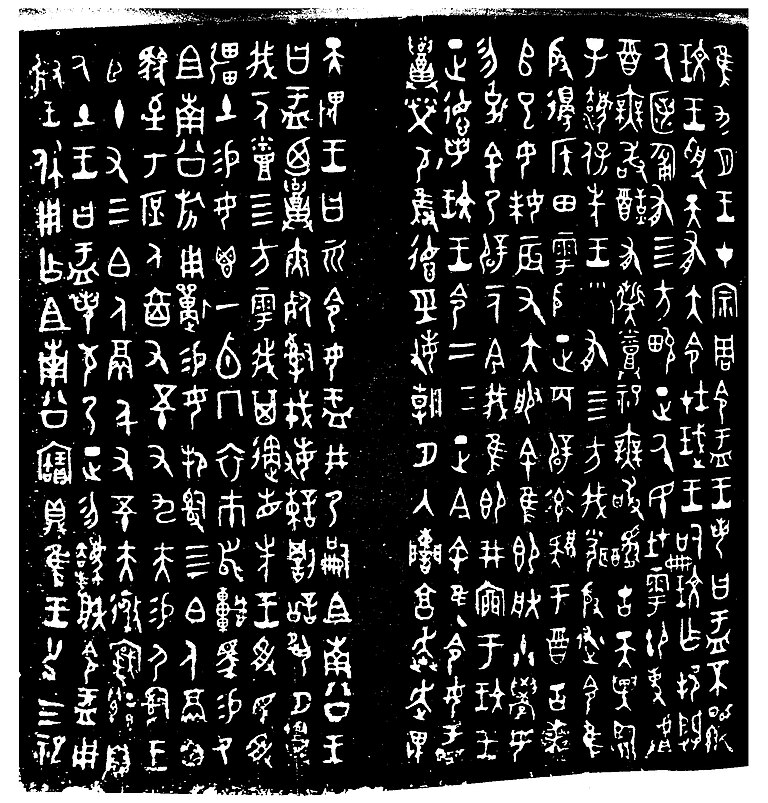 隹九月王才宗周令盂王若曰盂不顯
玟王受天有大令在珷王嗣玟乍邦闢
厥匿匍有四方畯正厥民在雩御事𠭯
酉無敢酖有髭烝祀無敢醻古天異臨
子灋保先王□有四方我聞殷述令隹
殷邊侯田雩殷正百辟率肄于酉古喪
師巳女妹辰又大服余隹即朕小學女
勿克余乃辟一人今我隹即井廩于玟王
正德若玟王令二三正今余隹令女盂
召榮敬雍德巠敏朝夕入讕享奔走畏
天畏王曰𠀠令女盂井乃嗣且南公王
曰盂迺召夾死司戎敏諫罰訟夙夕召
我一人烝四方雩我其遹省先王受民受
疆土易女鬯一卣冂衣巿舄車馬易乃
且南公旂用狩易女邦司四白人鬲自
馭至于庶人六百又五十又九夫易尸司王
臣十又三白人鬲千又五十夫𢓊遷自
厥土王曰盂若敬乃正勿灋朕令盂用
對王休用乍且南公寶鼎隹王廿又三祀